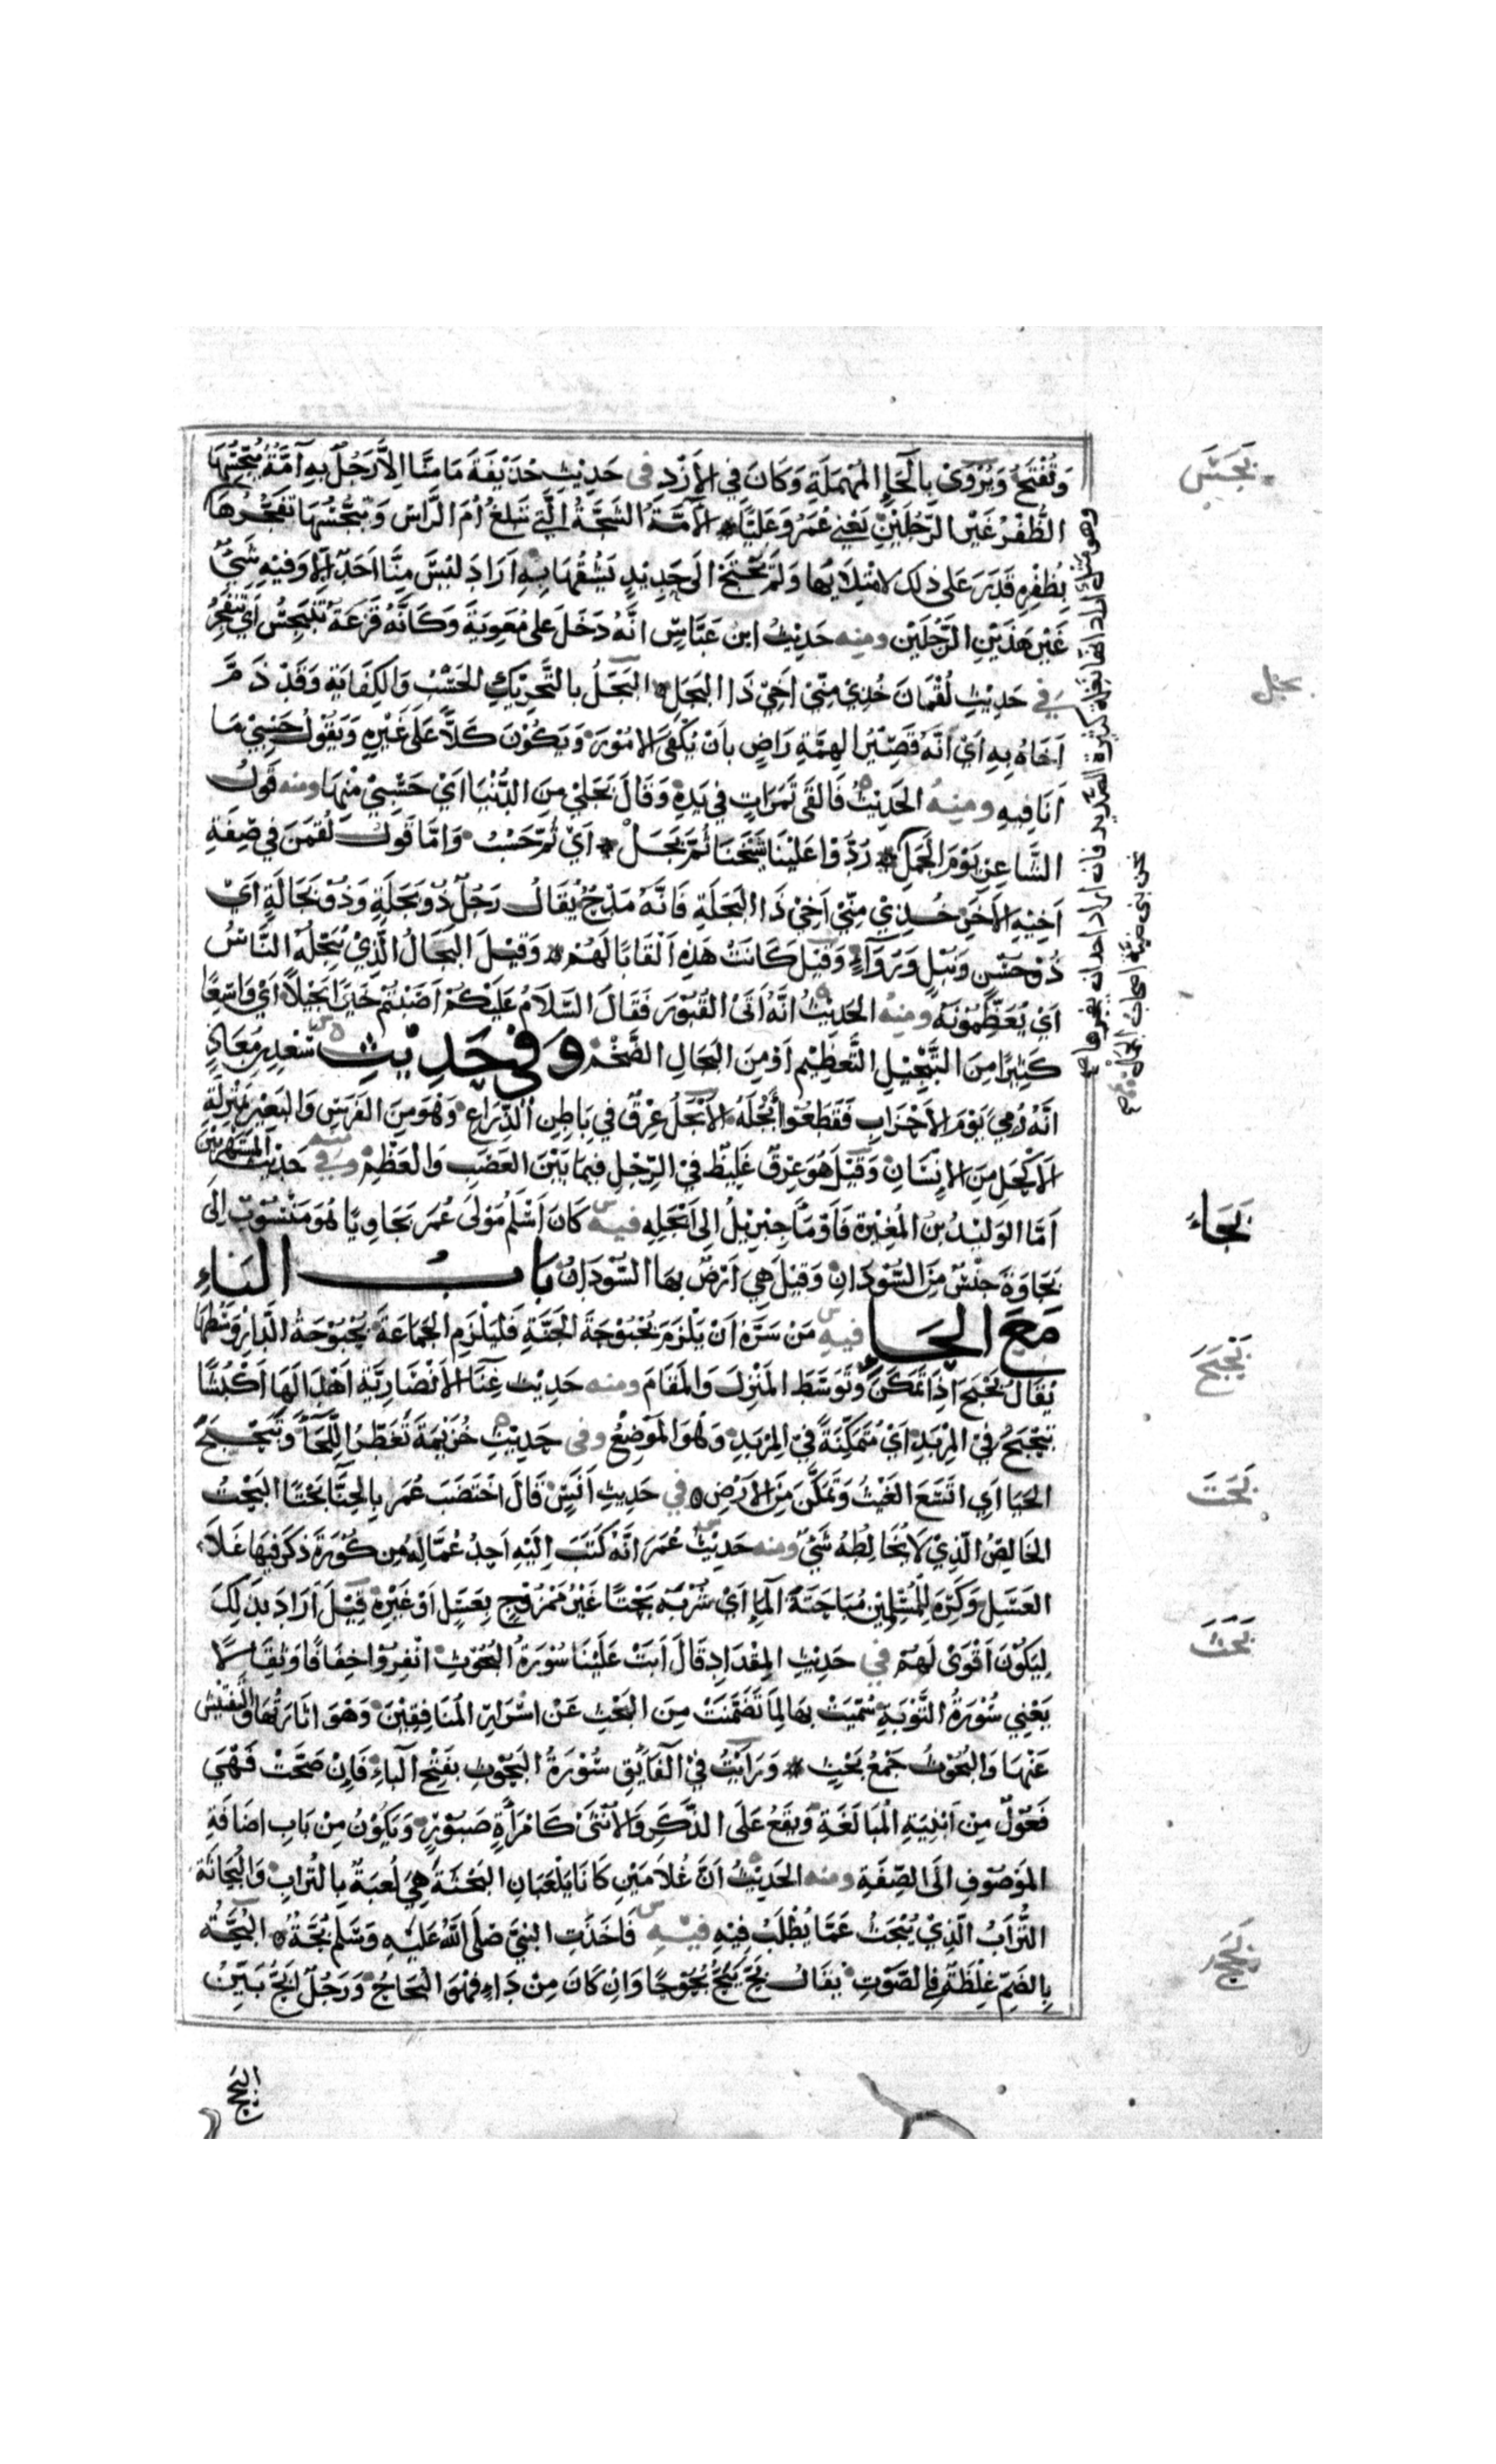 وَتُفْتَحُ وَيُرْوَى بِالْحَاءِ الْمُهْمَلَةِ وَكَانَ فِي الأَزْدِ فى حَدِيثِ حُذَيْفَةَ مَا مِنَّا إِلاَّ رَجُلٌ بِهِ آمَّةٌ يُبَجِّسُهَا
الظُّفْرُ غَيْرَ الرَّجُلَيْنِ يَعْنِي عُمَرَ وَعَلِيًّا الآمَّةُ الشَّجَّةُ الَّتِي تَبْلُغُ أُمَّ الرَّاسِ وَيُبَجِّسُهَا تَفَجُّرُهَا
بِظُفْرِهِ قَدَرَ عَلَى ذلِكَ لامْتِلَايِهَا وَلَمْ يَحْتَجْ الَى حَدِيدٍ يَشُقُّهَا بِهِ اَرَادَ لَيْسَ مِنَّا اَحَدٌ اِلَّا وَفِيهِ شَيْ
غَيْرَ هَذَيْنِ الرَّجُلَيْن ومنه حَدِيثُ ابن عَبَّاسٍ انَّهُ دَخَلَ عَلَى مُعَوِيَةَ وَكَانَّهُ قَزَعَةٌ تَتَبَجَّسُ اَيْ تَتَفَجَّرُ
في حَدِيثِ لُقْمَانَ خُذِيْ مِنّيْ اَخِيْ ذَا البَجَل البَجَلُ بالتَّحْرِيْكِ الحَسْبُ وَالكِفَايَةِ وَقَدْ ذَمَّ
اَخَاهُ بِهِ اَيْ اَنَّهُ قَصِيْرُ الهِمَّةِ رَاضٍ بِاَنْ يُكْفَى الامُوْرَ وَيَكُوْنَ كَلاًّ عَلَى غَيْرِهِ وَيَقُوْلُ حَسْبِيْ مَا
اَنَا فِيهِ ومنه الحَدِيْثُ فَالقَى تَمَرَاتٍ فِي يَدِهِ وَقَالَ بَجَلِيْ مِنَ الدُّنْيَا اَيْ حَسْبِيْ مِنْهَا ومنه قَوْلُ
الشَّاعِرِ يَوْمَ الجَمَلِ رُدُّوْا عَلَيْنَا شَيْخَنَا ثُمَّ بَجَلْ اَيْ ثُمَّ حَسْبُ وَامَّا قَوْلُ لُقْمَنَ فِي صِفَةِ
اَخِيْهِ الاَخَرِ خُذِيْ مِنّيْ اَخِيْ ذَا البَجَلَةِ فَانَّهُ مَدْحٌ يُقَالُ رَجُلٌ ذُوْ بَجَلَةٍ وَذُوْ بَجَالَةٍ اَيْ
ذُوْ حُسْنٍ وَنُبْلٍ وَرَوَآءٍ وَقِيْلَ كَانَتْ هَذِهِ اَلْقَابًا لَهُمْ وَقِيْلَ البَجَالُ الَّذِيْ يُبَجِّلُهُ النَّاسُ
اَيْ يُعَظِّمُوْنَهُ ومنه الحَدِيْثُ انَّهُ اَتَى القُبُوْرَ فَقَالَ السَّلَامُ عَلَيْكُمْ اَصَبْتُمْ خَيْرًا بَجِيْلاً اَيْ وَاسِعًا
كَثِيْرًا مِنَ التَّبْجِيْلِ التَّعْظِيْمِ اَوْ مِنَ البَجَالِ الضَّخْمِ وَفى حَدِيْثِ سَعْدِ بِن مُعَاذٍ
انَّهُ رُمِيَ يَوْمَ الاَحْزَابِ فَقَطَعُوْا اَبْجَلَهُ الاَبْجَلُ عِرْقٌ فِي بَاطِنِ الذِّرَاعِ وَهُوَ مِنَ الفَرَسِ وَالبَعِيْرِ بِمَنْزِلَةِ
الاَكْحَلِ مِنَ الانْسَانِ وَقِيْلَ هُوَ عِرْقٌ غَلِيْظٌ فِي الرِّجْلِ فِيمَا بَيْنَ العَصَبِ وَالعَظْمِ وفي حَدِيْثِ المُسْتَهْزِئِيْن
اَمَّا الوَلِيْدُ بنُ المُغِيْرَةِ فَاَوْمَا جِبْرِيْلُ الَى اَبْجَلِهِ فيه كَانَ اَسْلَمُ مَوْلَى عُمَرَ بَجَاوِيًّا هُوَ مَنْسُوْبٌ اِلَى
بَجَاوَةَ جِنْسٌ مِنَ السُّوْدَانِ وَقِيْلَ هِيَ اَرْضٌ بِهَا السُّوْدَانُ بَابُ البَاءِ
مَعَ الحَاءِ فيهِ مَنْ سَرَّهُ اَنْ يَلْزَمَ بُحْبُوْحَةَ الجَنَّةِ فَلْيَلْزَمِ الجَمَاعَةَ بُحْبُوْحَةُ الدَّارِ وَسَطُهَا
يُقَالُ بَحْبَحَ اِذَا تَمَكَّنَ وَتَوَسَّطَ المَنْزِلَ وَالمَقَامَ ومنه حَدِيْثُ غِنَآ الاَنْصَارِيَّةِ اَهْدَا لَهَا اَكْبُشًا
تَبَحْبَحُ فِيْ المِرْبَدِ اَيْ مُتَمَكِّنَةً فِيْ المِرْبَدِ وَهُوَ المَوْضِعُ وفى حَدِيْثِ خُزَيْمَةَ تُفَطِّرُ اللِّحَآ وَتَبَحْبَحَ
الحَيَا اَيِ اتَّسَعَ الغَيْثُ وَتَمَكَّنَ مِنَ الاَرْضِ في حَدِيْثِ اَنَسٍ قَالَ اخْتَضَبَ عُمَر بِالحِنَّا بَحْتًا البَحْتُ
الخَالِصُ الَّذِيْ لَا يُخَالِطُهُ شَيْ ومنه حَدِيْثُ عُمَرَ انَّهُ كَتَبَ اِلَيْهِ اَحَدُ عُمَّالِهِ مِن كُوْرَةٍ ذَكَرَ فِيهَا غَلَاءَ
العَسَلِ وَكَرِهَ لِلْمُسْلِمِيْن مُبَاحَتَةُ المَاءِ اَيْ شُرْبَهُ بَحْتًا غَيْرُ مَمْزُوْجٍ بِعَسَلٍ اَوْ غَيْرِهِ قِيْلَ اَرَادَ بِذَلِكَ
لِيَكُوْنَ اَقْوَى لَهُمْ في حَدِيْثِ المِقْدَادِ قَالَ اَبَتْ عَلَيْنَا سُوْرَةُ البُحُوْثِ انْفِرُوْا خِفَافًا وَثِقَالاً
يَعْنِي سُوْرَةُ التَّوْبَةِ سُمِّيَتْ بِهَا لِمَا تَضَمَّنَتْ مِنَ البَحْثِ عَنْ اسْرَارِ المُنَافِقِيْنَ وَهْوَ اثَارَتُهَا وَالتَّفْتِيْش
عَنْهَا وَالبُحُوْثُ جَمْعُ بَحْثٍ وَرَاَيْتُ فِيْ الفَايِقِ سُوْرَةُ البَحُوْثِ بِفَتْحِ البَاءِ فَاِنْ صَحَّتْ فَهْيَ
فَعُوْلٌ مِنْ اَبْنِيَةِ المُبَالَغَةِ وَيَقَعُ عَلَى الذَّكَرِ وَالاُنْثَى كَامْرَأَةٍ صَبُوْرٍ وَيَكُوْنُ مِنْ بَابِ اضَافَةِ
المَوْصُوْفِ الَى الصِّفَةِ ومنه الحَدِيْثُ اَنَّ غُلَامَيْنِ كَانَا يَلْعَبَانِ البَحْثَةَ هِيَ لُعْبَةٌ بِالتُّرَابِ وَالبُحَاثَةُ
التُّرَابُ الَّذِيْ يُبْحَثُ عَمَّا يُطْلَبُ فِيْهِ فيه فَاَخَذَتِ النَبِيَّ صَلَى اللهُ عَلَيْهِ وَسَّلَم بُحَّةٌ البُحَّةُ
بِالضَمِّ غِلْظَةٌ فِي الصَّوْتِ يُقَالُ بَحَّ يَبُحُّ بُحُوْحًا وَانْ كَانَ مِنْ دَاءٍ فَهْوَ البُحَاحُ وَرَجُلٌ اَبَحُّ بَيِّنُ
البَحَحِ
بَجَسَ
بجل
بَجَاءَ
بَحْبَحَ
بَحَتَ
بَحَثَ
بَحَحَ
وهو مثل اراد انها نغلة كثيرة الصديد فان اراد احد ان يفجرها
نحن بنى ضبة اصحاب الجمل صح